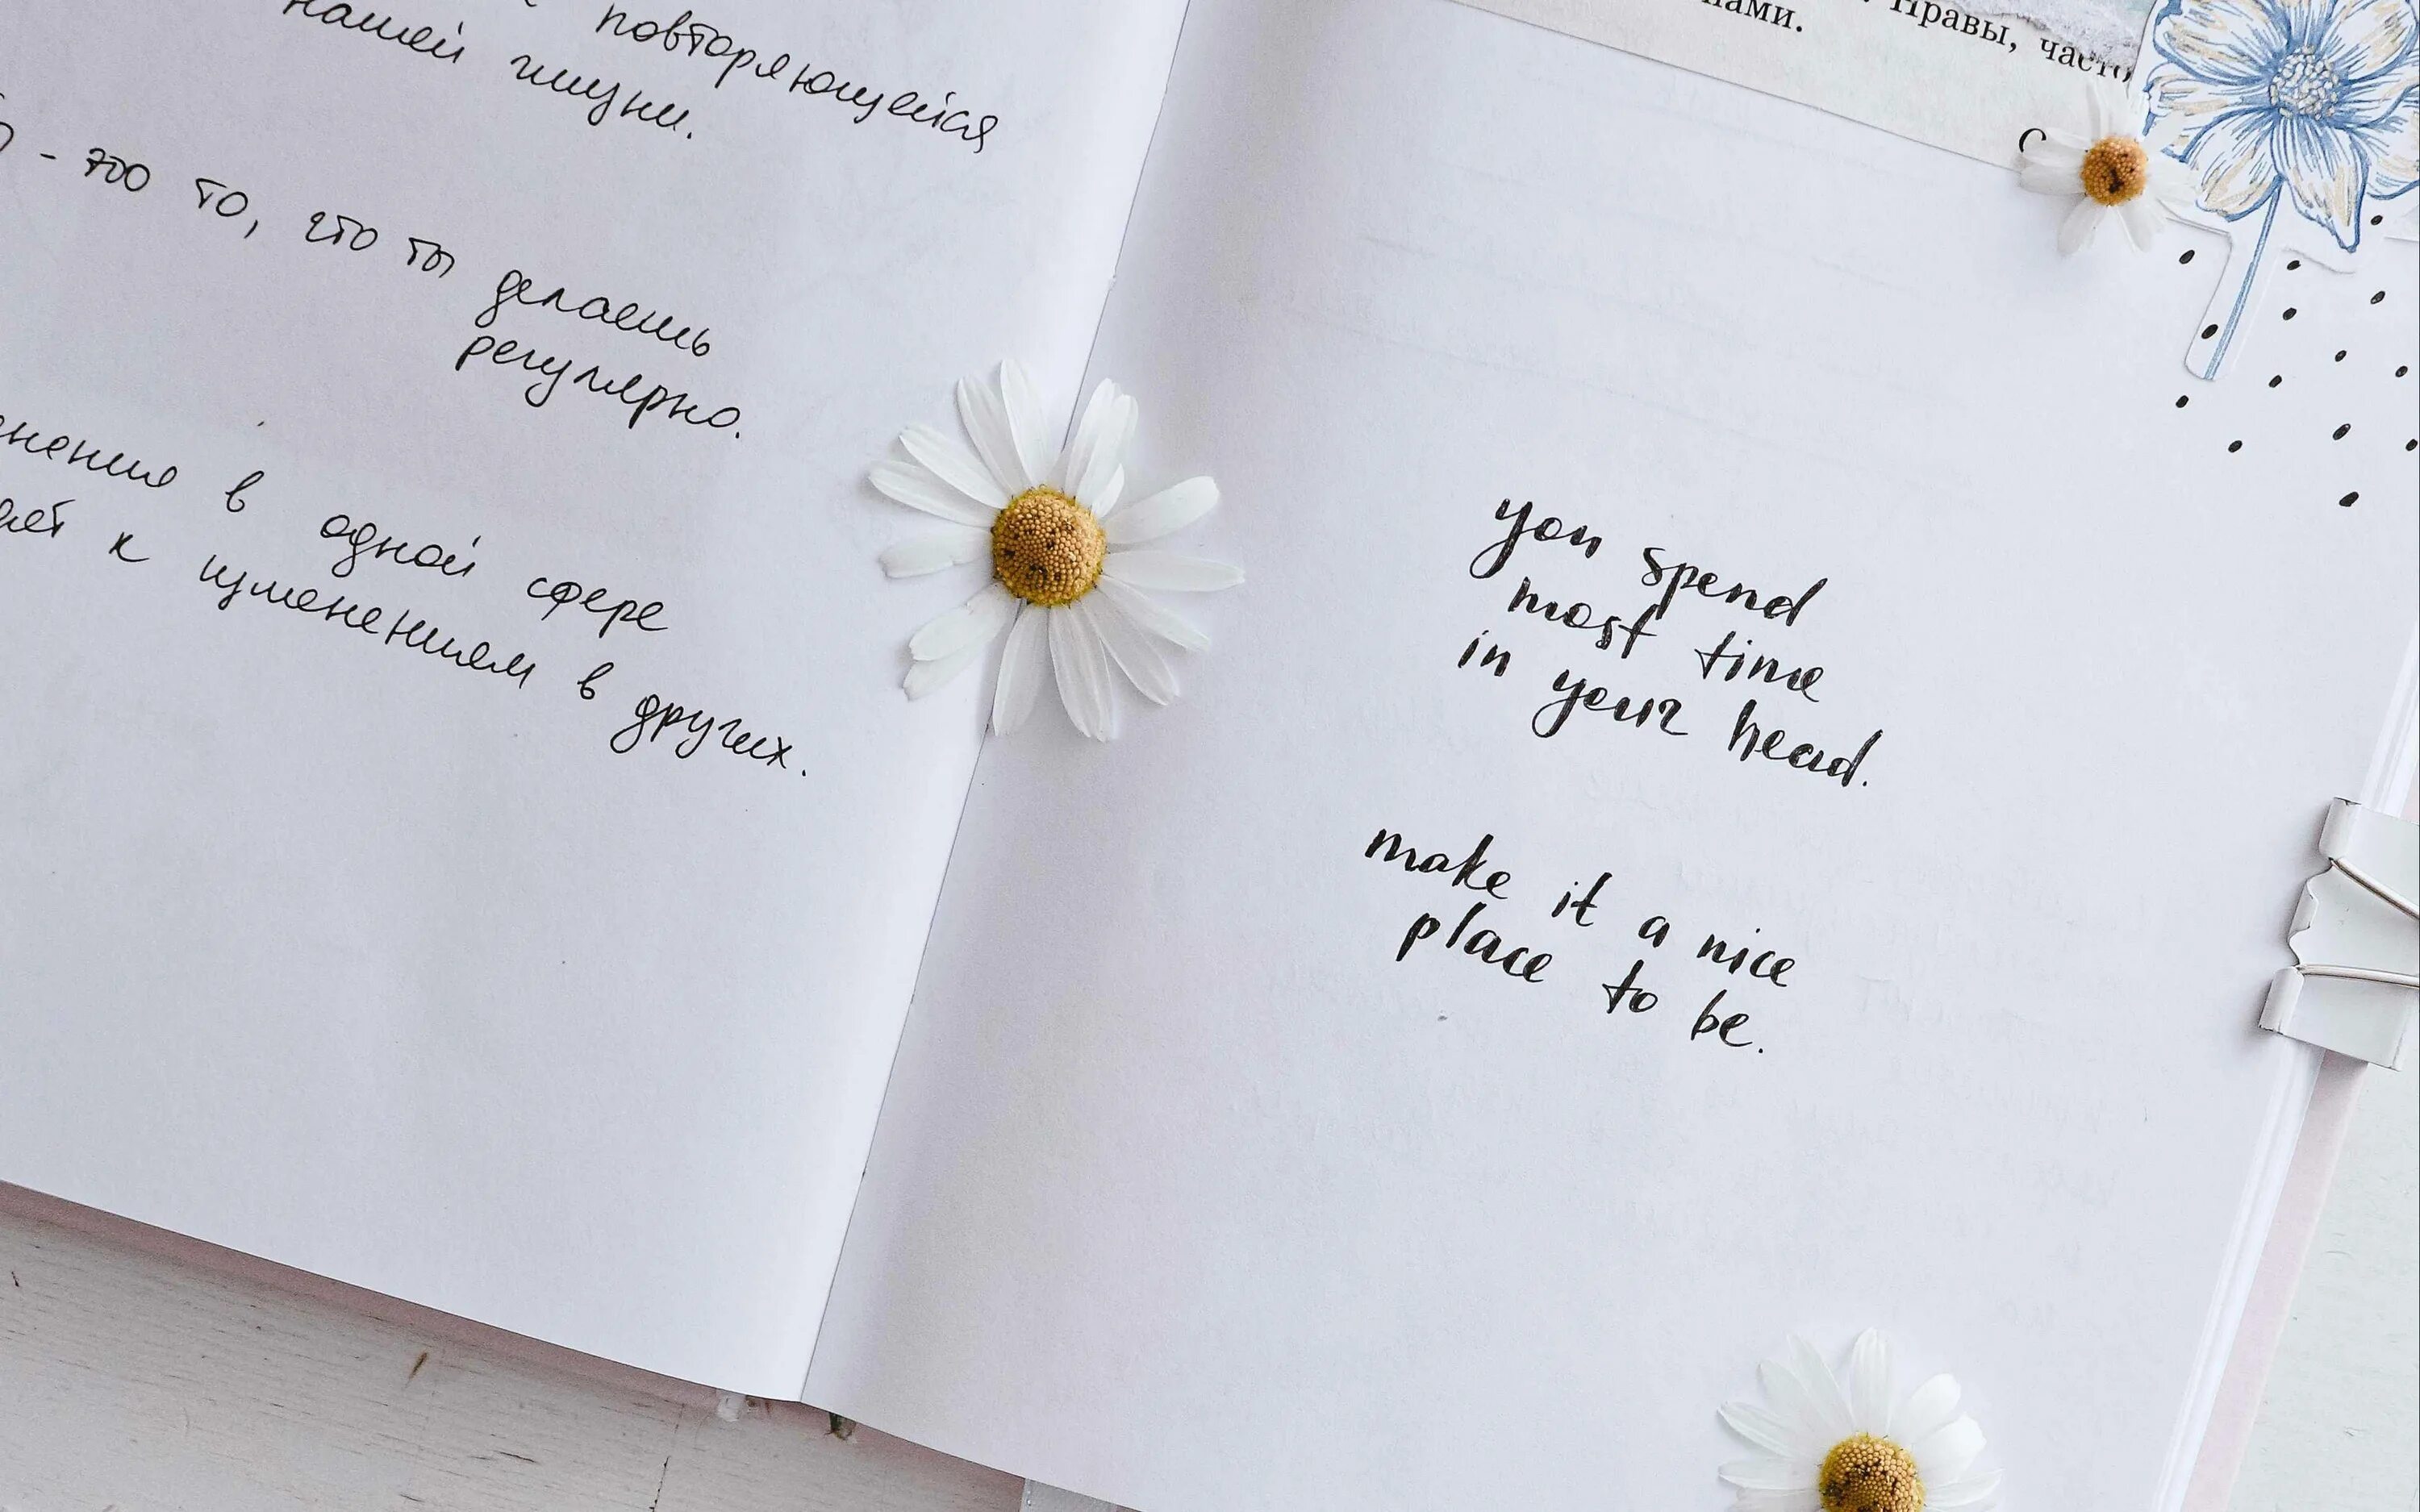 повторяющейся
нашей жизни.
- это то, что ты делаешь
регулярно.
в одной сфере
к изменениям в других.
Нравы, часто
you spend
most time
in your head.
make it a nice
place to be.